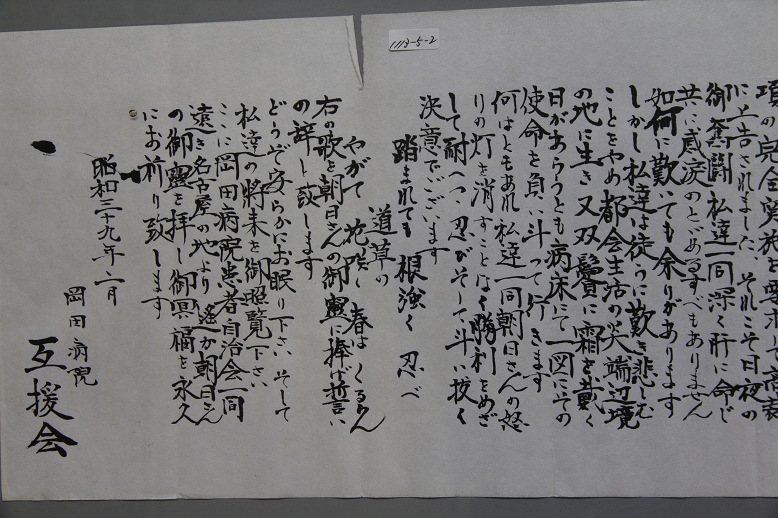 1113-5-2
項の完全実施を要求して高裁
に上告されました、それこそ日夜の
御奮闘私達一同深く肝に命じ
共に感涙のとどめるすべもありません
如何に歎いても余りがあります
しかし私達は徒らに歎き悲しむ
ことをやめ都会生活の尖端辺境
の地に生き又双鬢に霜を戴く
日があらうとも病床にて一図にその
使命を負い斗って行きます
何はともあれ私達一同朝日さんの怒
りの灯を消すことなく勝利をめざ
して耐へつつ忍びそして斗い抜く
決意でございます
踏まれても根強く忍べ
道草の
やがて花咲く春はくるらん
右の歌を朝日さんの御霊に捧げ誓い
の辞と致します
どうぞ安らかにお眠り下さい そして
私達の将来を御照覧下さい
ここに岡田病院患者自治会一同
遠き名古屋の地より遙か朝日さん
の御霊を拝し御冥福を永久
にお祈り致します
昭和三十九年二月
岡田病院
互援会